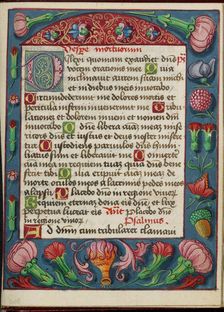 Dilexi quoniam exaudiet dns
orationis mee Quia
inclinavit aurem suam michi
et in diebus meis invocabo
Circumdederunt me dolores mortis et
pericula inferni invenerunt me Tribu
lationem et dolorem inveni et nomen
dni invocavi O dne libera animam me
am misericors dns et iustus et deus noster misere
tur Custodiens parvulos dns humi
liatus sum et liberavit me Convertere
anima mea in requiem tuam quia dns be
nefecit tibi Quia eripuit animam meam de
morte oculos meos a lacrimis pedes meos
a lapsu Placebo dno in regione vivorum
Requiem eternam dona eis dne et lux
perpetua luceat eis Ant Placebo dno
in regione vivorum Psalmus
Ad dnm cum tribularer clamavi